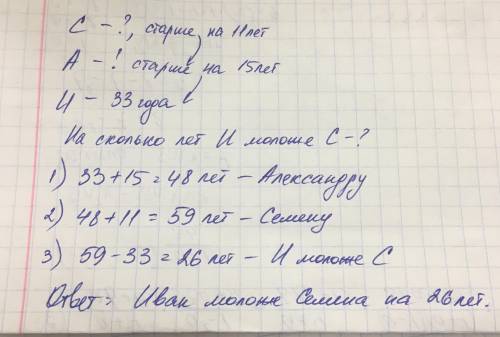 С - ?, старше на 11 лет
А - ! старше на 15 лет
И - 33 года
На сколько лет И моложе С - ?
1) 33 + 15 = 48 лет - Александру
2) 48 + 11 = 59 лет - Семену
3) 59 - 33 = 26 лет - И моложе С
Ответ: Иван моложе Семена на 26 лет.